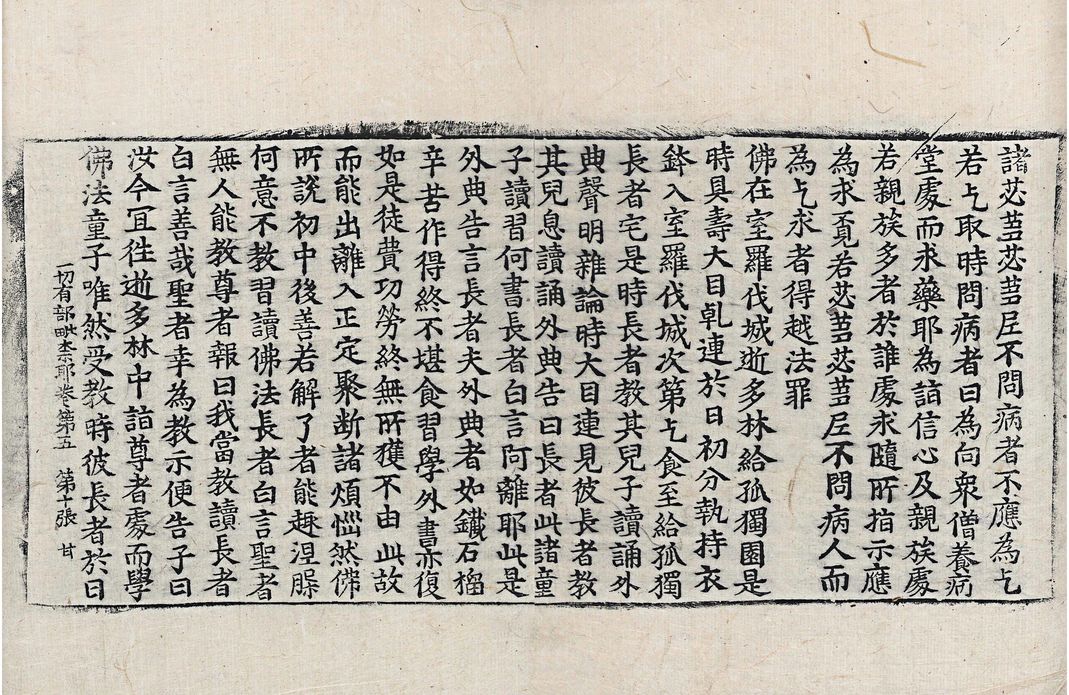 諸苾芻苾芻尼不問病者不應為乞
若乞取時問病者曰為向衆僧養病
堂處而求藥耶為詣信心及親族處
若親族多者於誰處求隨所指示應
為求覓若苾芻苾芻尼不問病人而
為乞求者得越法罪
佛在室羅伐城逝多林給孤獨園是
時具壽大目乹連於日初分執持衣
鉢入室羅伐城次第乞食至給孤獨
長者宅是時長者教其兒子讀誦外
典聲明雜論時大目連見彼長者教
其兒息讀誦外典告曰長者此諸童
子讀習何書長者白言阿離耶此是
外典告言長者夫外典者如鐵石榴
辛苦作得終不堪食習學外書亦復
如是徒費功勞終無所獲不由此故
而能出離入正定聚斷諸煩惱然佛
所說初中後善若解了者能趣涅槃
何意不教習讀佛法長者白言聖者
無人能教尊者報曰我當教讀長者
白言善哉聖者幸為教示便告子曰
汝今冝徃逝多林中詣尊者處而學
佛法童子唯然受教時彼長者於日
一切有部毗柰耶卷第五　第十張　甘